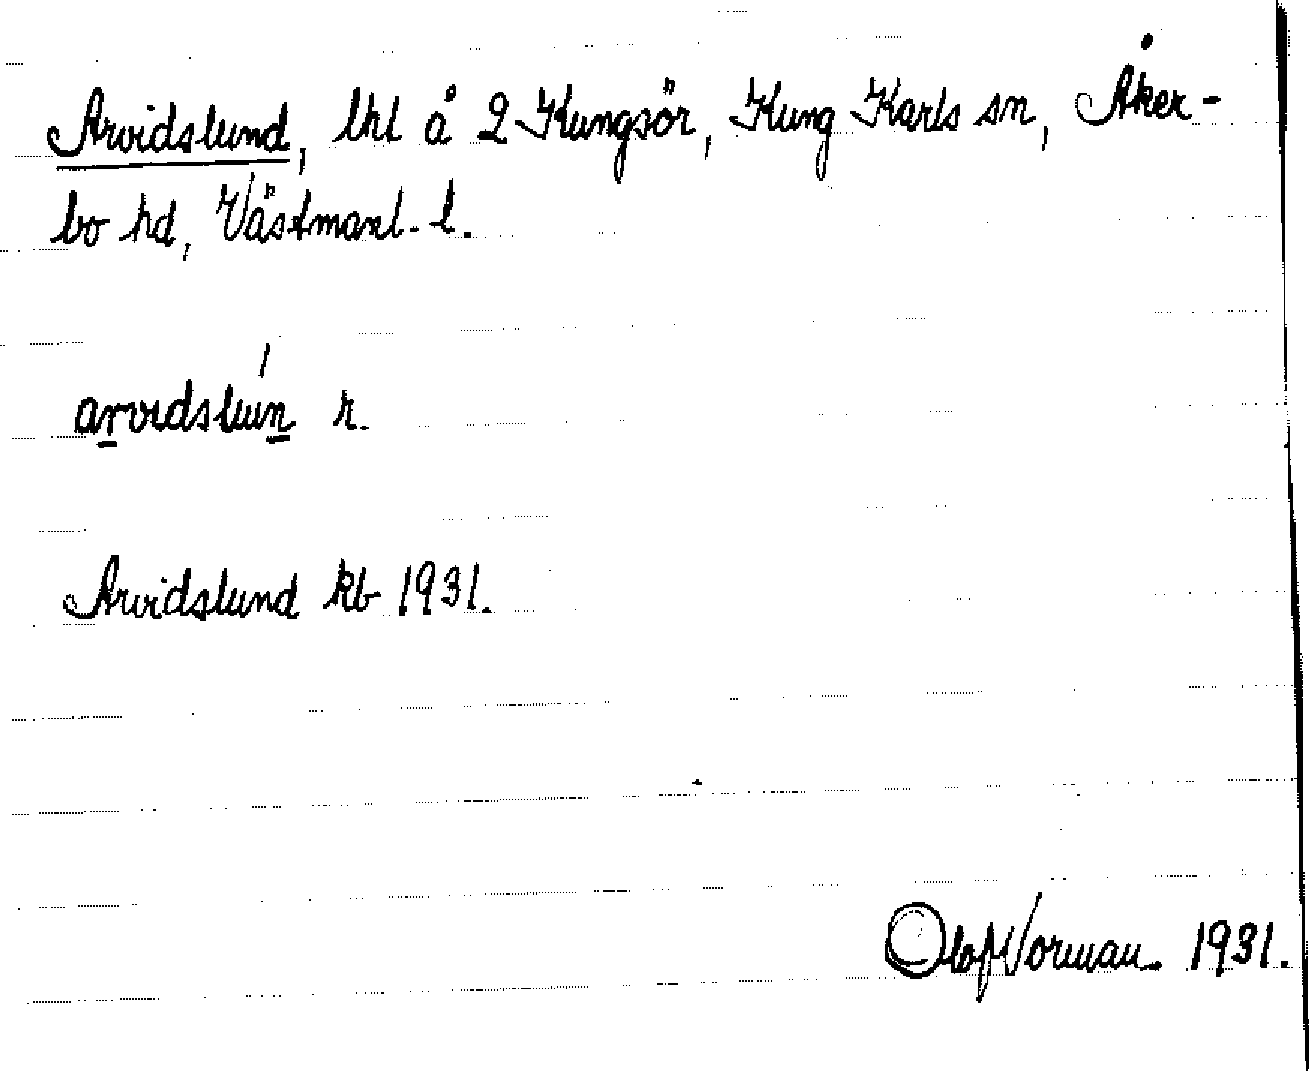 Arvidslund, lht å 2 Kungsör, Kung Karls sn, Åker-
bo hd, Västmanl. l.
arvidslun r.
Arvidslund kb 1931.
Olof Norman. 1931.